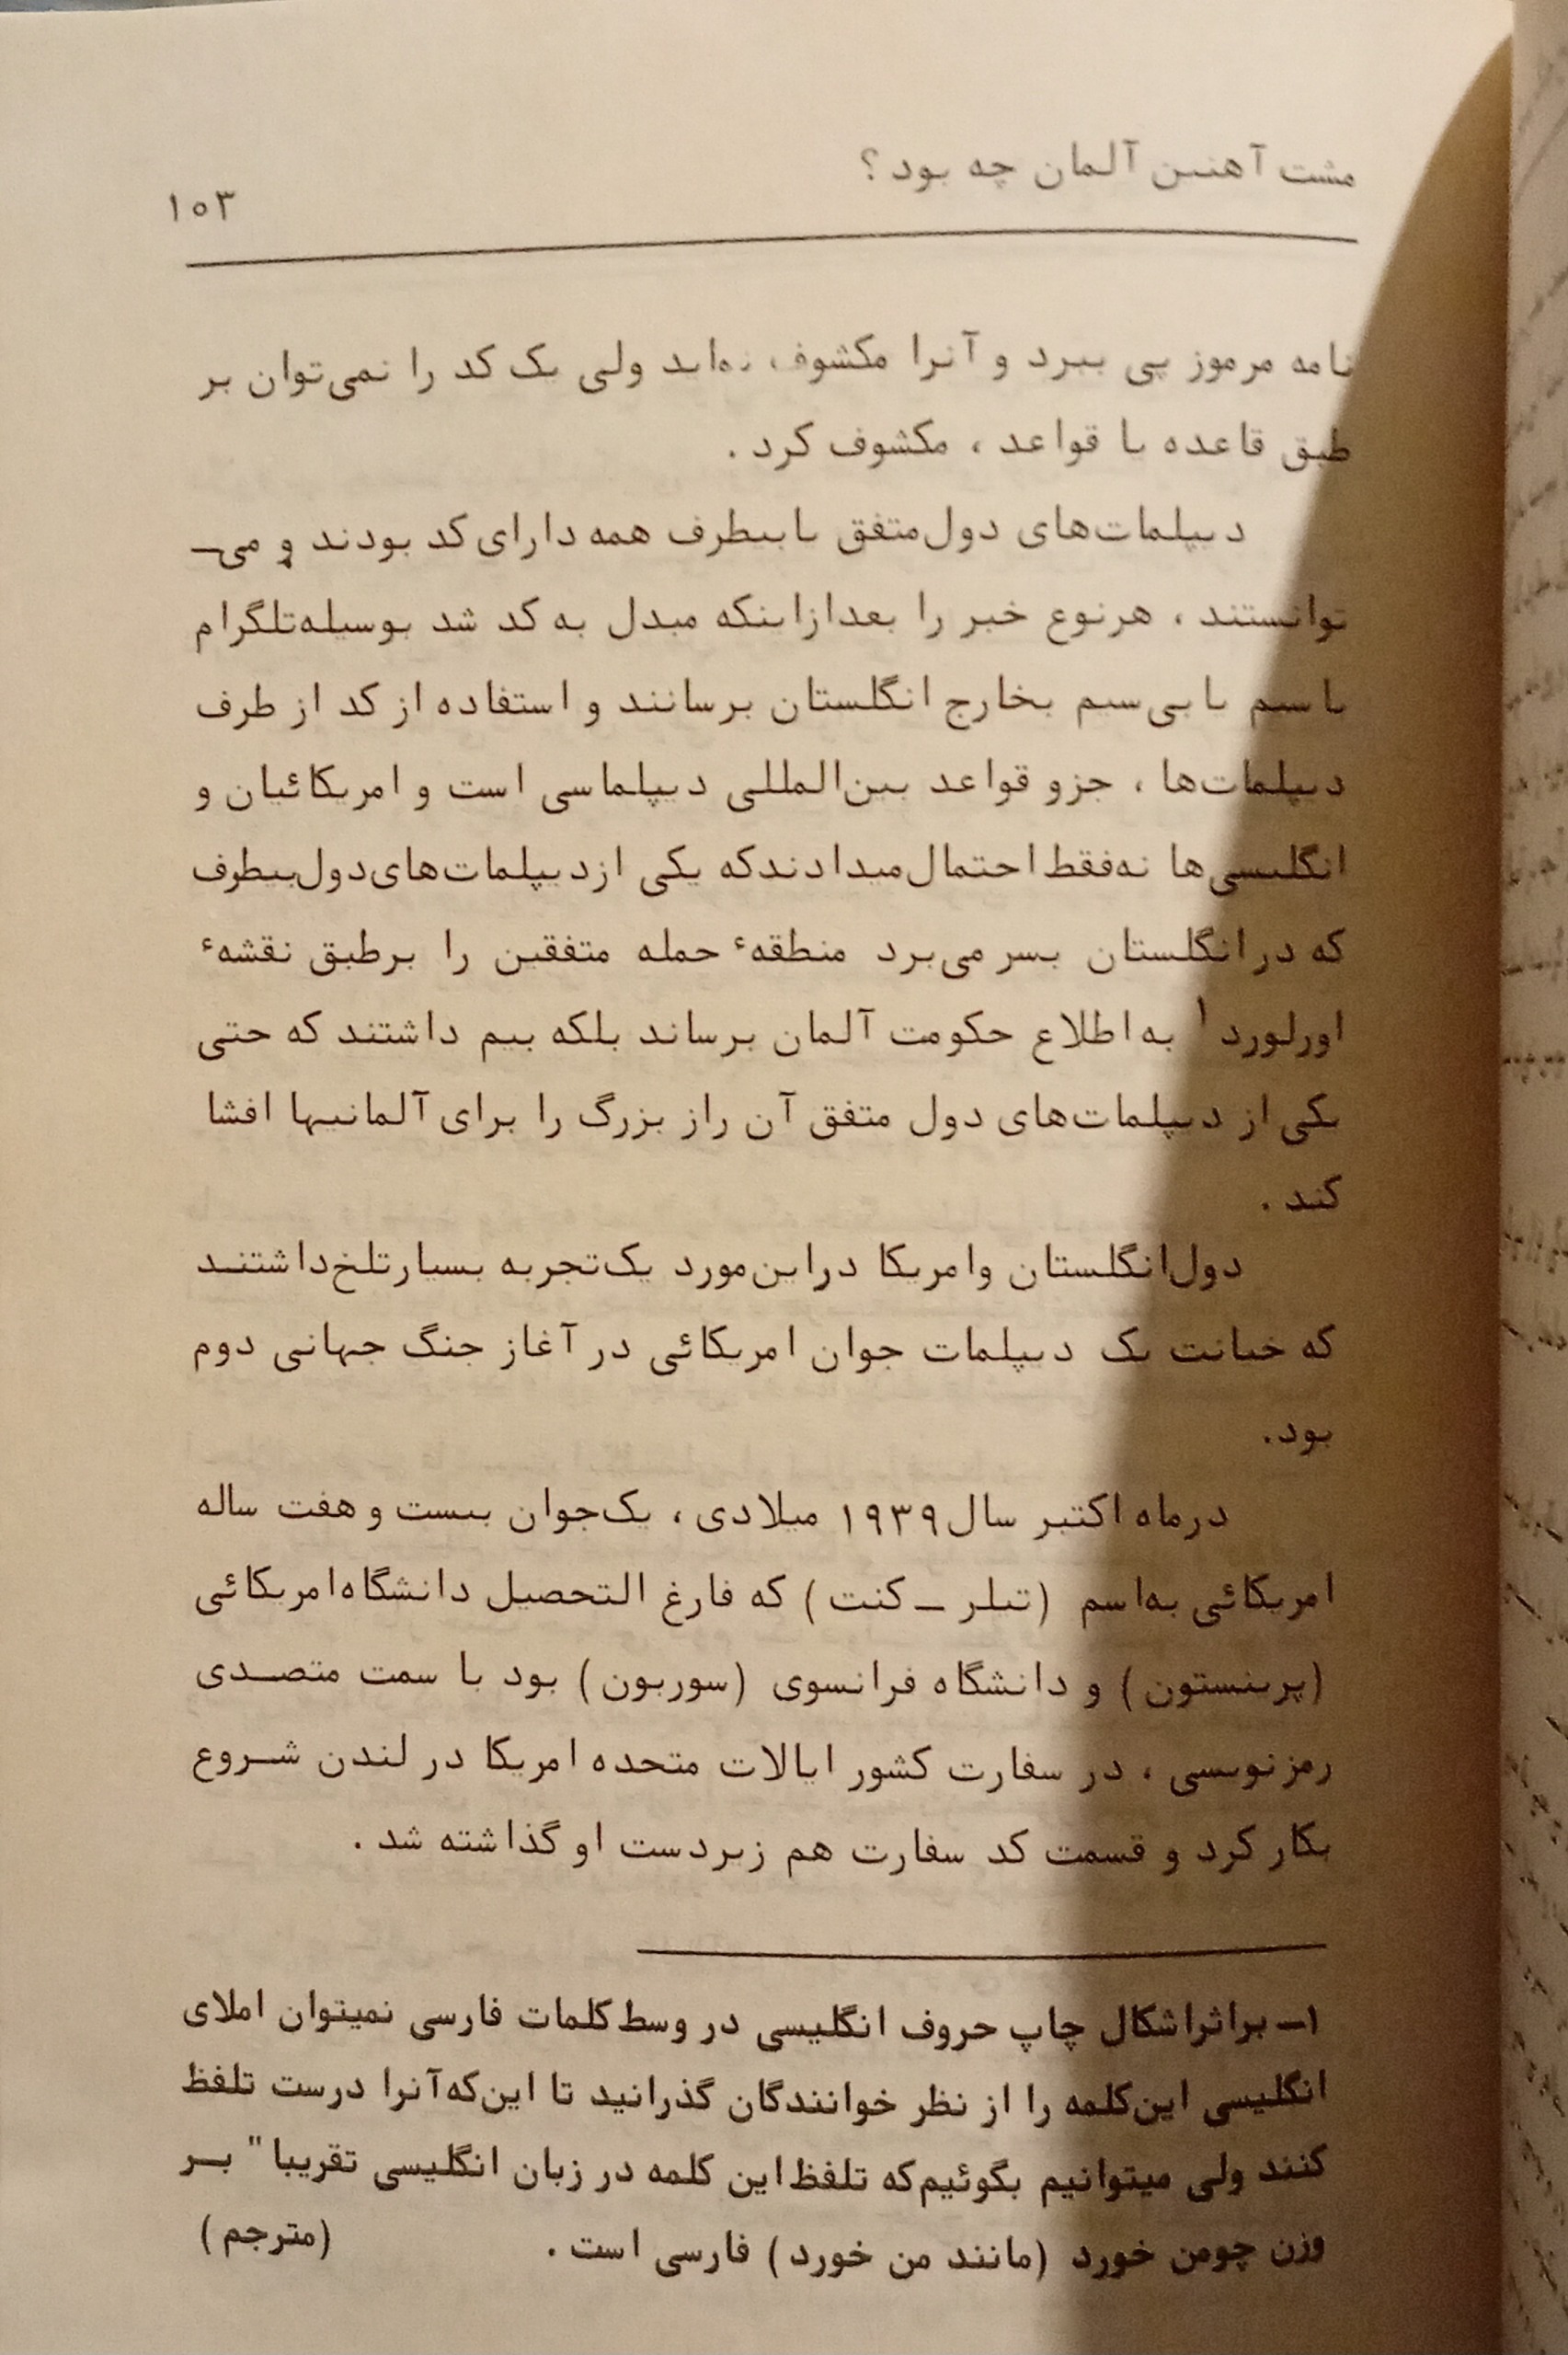 مشت آهنین آلمان چه بود ؟
۱۰۳
نامه مرموز پی ببرد و آنرا مکشوف ولی یک کد را نمی‌توان بر
طبق قاعده یا قواعد ، مکشوف کرد .
دیپلمات‌های دول متفق یا بیطرف همه دارای کد بودند و می‌ـ
توانستند ، هرنوع خبر را بعد از اینکه مبدل به کد شد بوسیله تلگرام
با سیم یا بی‌سیم بخارج انگلستان برسانند و استفاده از کد از طرف
دیپلمات‌ها ، جزو قواعد بین‌المللی دیپلماسی است و امریکائیان و
انگلیسی‌ها نه‌فقط احتمال میدادند که یکی از دیپلمات‌های دول بیطرف
که در انگلستان بسر می‌برد منطقهٔ حمله متفقین را برطبق نقشهٔ
اورلورد۱ به اطلاع حکومت آلمان برساند بلکه بیم داشتند که حتی
یکی از دیپلمات‌های دول متفق آن راز بزرگ را برای آلمانیها افشا
کند .
دول انگلستان و امریکا در این مورد یک تجربه بسیار تلخ داشتنـد
که خیانت یک دیپلمات جوان امریکائی در آغاز جنگ جهانی دوم
بود.
درماه اکتبر سال ۱۹۳۹ میلادی ، یک جوان بیست و هفت ساله
امریکائی به‌اسم (تیلر ـ کنت ) که فارغ التحصیل دانشگاه امریکائی
(پرینستون ) و دانشگاه فرانسوی (سوربون ) بود با سمت متصـدی
رمزنویسی ، در سفارت کشور ایالات متحده امریکا در لندن شـروع
بکار کرد و قسمت کد سفارت هم زیردست او گذاشته شد .
۱ـ براثر اشکال چاپ حروف انگلیسی در وسط کلمات فارسی نمیتوان املای
انگلیسی این کلمه را از نظر خوانندگان گذرانید تا این‌که آنرا درست تلفظ
کنند ولی میتوانیم بگوئیم که تلفظ این کلمه در زبان انگلیسی تقریبا " بـر
وزن چومن خورد (مانند من خورد ) فارسی است . (مترجم )